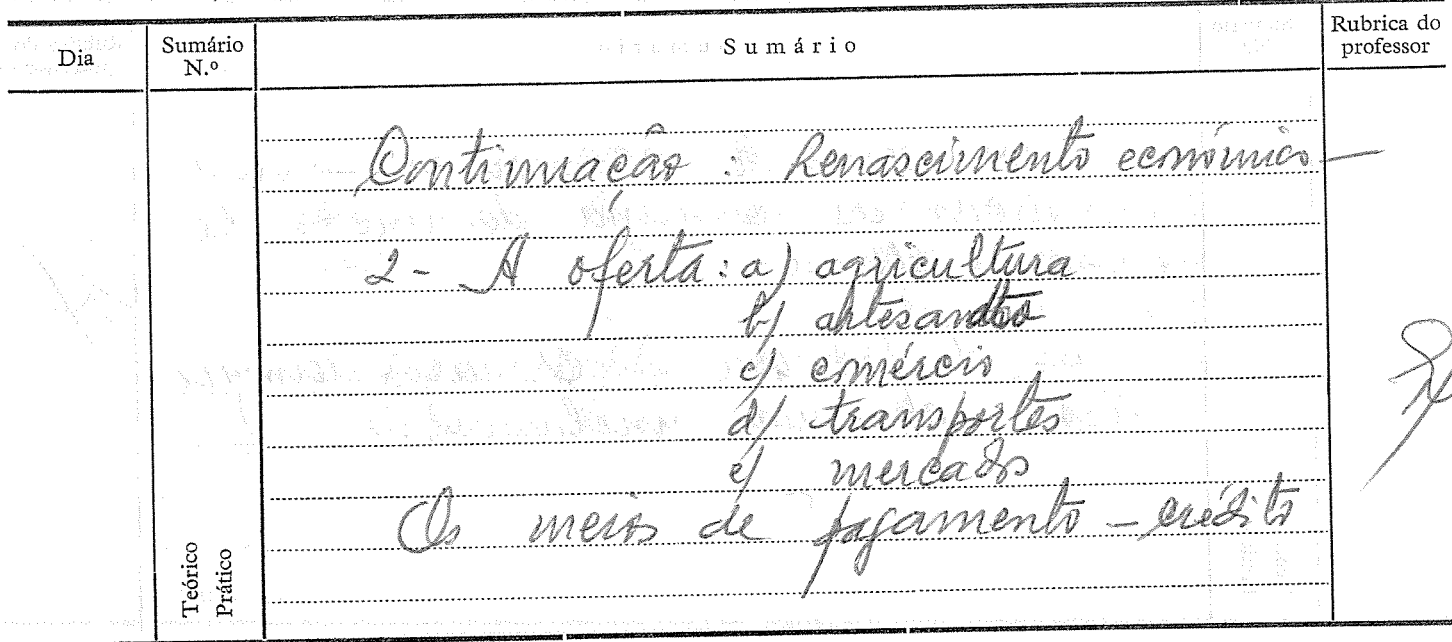 Dia
Sumário N.º
Sumário
Rubrica do professor
Continuação : Renascimento económico —
2 - A oferta : a) agricultura
b) artesanato
c) comércio
d) transportes
e) mercado
Os meios de pagamento - crédito
Teórico
Prático